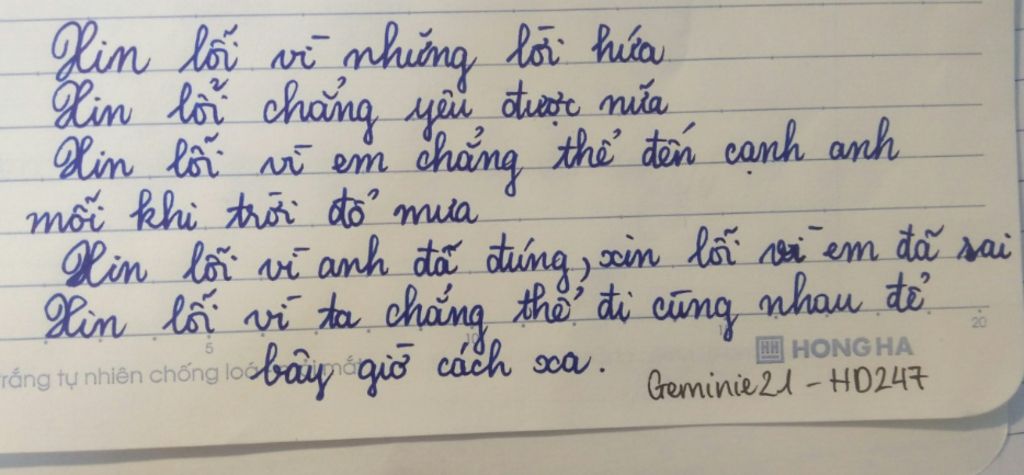 Xin lỗi vì những lời hứa
Xin lỗi chẳng yêu được nữa
Xin lỗi vì em chẳng thể đến cạnh anh
mỗi khi trời đổ mưa
Xin lỗi vì anh đã đúng, xin lỗi vì em đã sai
Xin lỗi vì ta chẳng thể đi cùng nhau để
bây giờ cách xa.
5 10 15 20
HH HONG HA
trắng tự nhiên chống loá mắt
Geminie21 - HD247